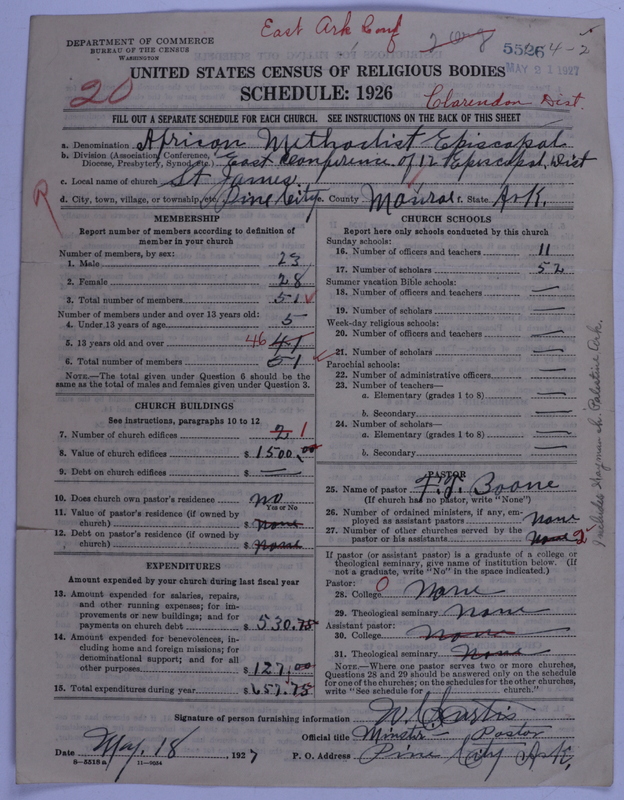 East Ark Conf
DEPARTMENT OF COMMERCE
BUREAU OF THE CENSUS
WASHINGTON
55264-2
MAY 21 1927
UNITED STATES CENSUS OF RELIGIOUS BODIES
SCHEDULE: 1926
20
Clarendon Dist.
FILL OUT A SEPARATE SCHEDULE FOR EACH CHURCH. SEE INSTRUCTIONS ON THE BACK OF THIS SHEET
a. Denomination African Methodist Episcopal
b. Division (Association, Conference, Diocese, Presbytery, Synod, etc.) East Conference of 12 Episcopal Dist
c. Local name of church St James
d. City, town, village, or township, etc. Pine City e. County Monroe f. State Ark.
R
MEMBERSHIP
Report number of members according to definition of member in your church
Number of members, by sex:
1. Male 23
2. Female 28
3. Total number of members 51
Number of members under and over 13 years old:
4. Under 13 years of age 5
5. 13 years old and over 46
6. Total number of members 51
NOTE.—The total given under Question 6 should be the same as the total of males and females given under Question 3.
CHURCH BUILDINGS
See instructions, paragraphs 10 to 12
7. Number of church edifices 2 1
8. Value of church edifices $ 1500.00
9. Debt on church edifices $ —
10. Does church own pastor's residence No
Yes or No
11. Value of pastor's residence (if owned by church) $ none
12. Debt on pastor's residence (if owned by church) $ none
EXPENDITURES
Amount expended by your church during last fiscal year
13. Amount expended for salaries, repairs, and other running expenses; for improvements or new buildings; and for payments on church debt $ 530.75
14. Amount expended for benevolences, including home and foreign missions; for denominational support; and for all other purposes $ 127.00
15. Total expenditures during year $ 657.75
CHURCH SCHOOLS
Report here only schools conducted by this church
Sunday schools:
16. Number of officers and teachers 11
17. Number of scholars 52
Summer vacation Bible schools:
18. Number of officers and teachers —
19. Number of scholars —
Week-day religious schools:
20. Number of officers and teachers —
21. Number of scholars —
Parochial schools:
22. Number of administrative officers —
23. Number of teachers—
a. Elementary (grades 1 to 8) —
b. Secondary —
24. Number of scholars—
a. Elementary (grades 1 to 8) —
b. Secondary —
PASTOR
25. Name of pastor F. J. Boone
(If church has no pastor, write "None")
26. Number of ordained ministers, if any, employed as assistant pastors none
27. Number of other churches served by the pastor or his assistants none 2
If pastor (or assistant pastor) is a graduate of a college or theological seminary, give name of institution below. (If not a graduate, write "No" in the space indicated.)
Pastor:
28. College 0 None
29. Theological seminary None
Assistant pastor:
30. College None
31. Theological seminary None
NOTE.—Where one pastor serves two or more churches, Questions 28 and 29 should be answered only on the schedule for one of the churches; on the schedules for the other churches, write "See schedule for church."
Includes ch. Palestine Ark.
Signature of person furnishing information W. C. Curtis
Official title Minster Pastor
Date May. 18 1927 P. O. Address Pine City Ark.
8—5518a 11—9034